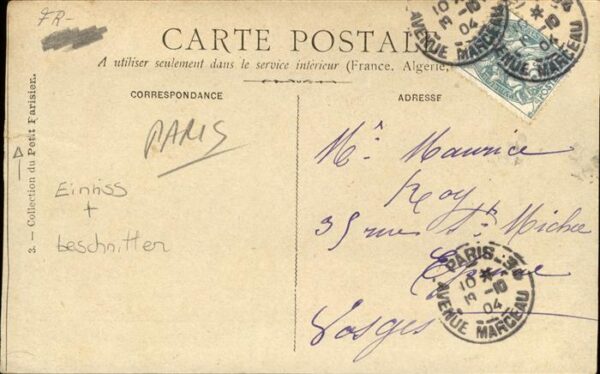 FR-
CARTE POSTALE
A utiliser seulement dans le service intérieur (France, Algérie,
CORRESPONDANCE
ADRESSE
3. — Collection du Petit Parisien.
PARIS
Einriss
+
beschnitten
Mr. Maurice
Roy
35 rue St Michel
Epinal
Vosges
10 *
3 -10
04
AVENUE MARCEAU
AVENUE MARCEAU
04
POSTES
PARIS
10 *
3 -10
04
AVENUE MARCEAU